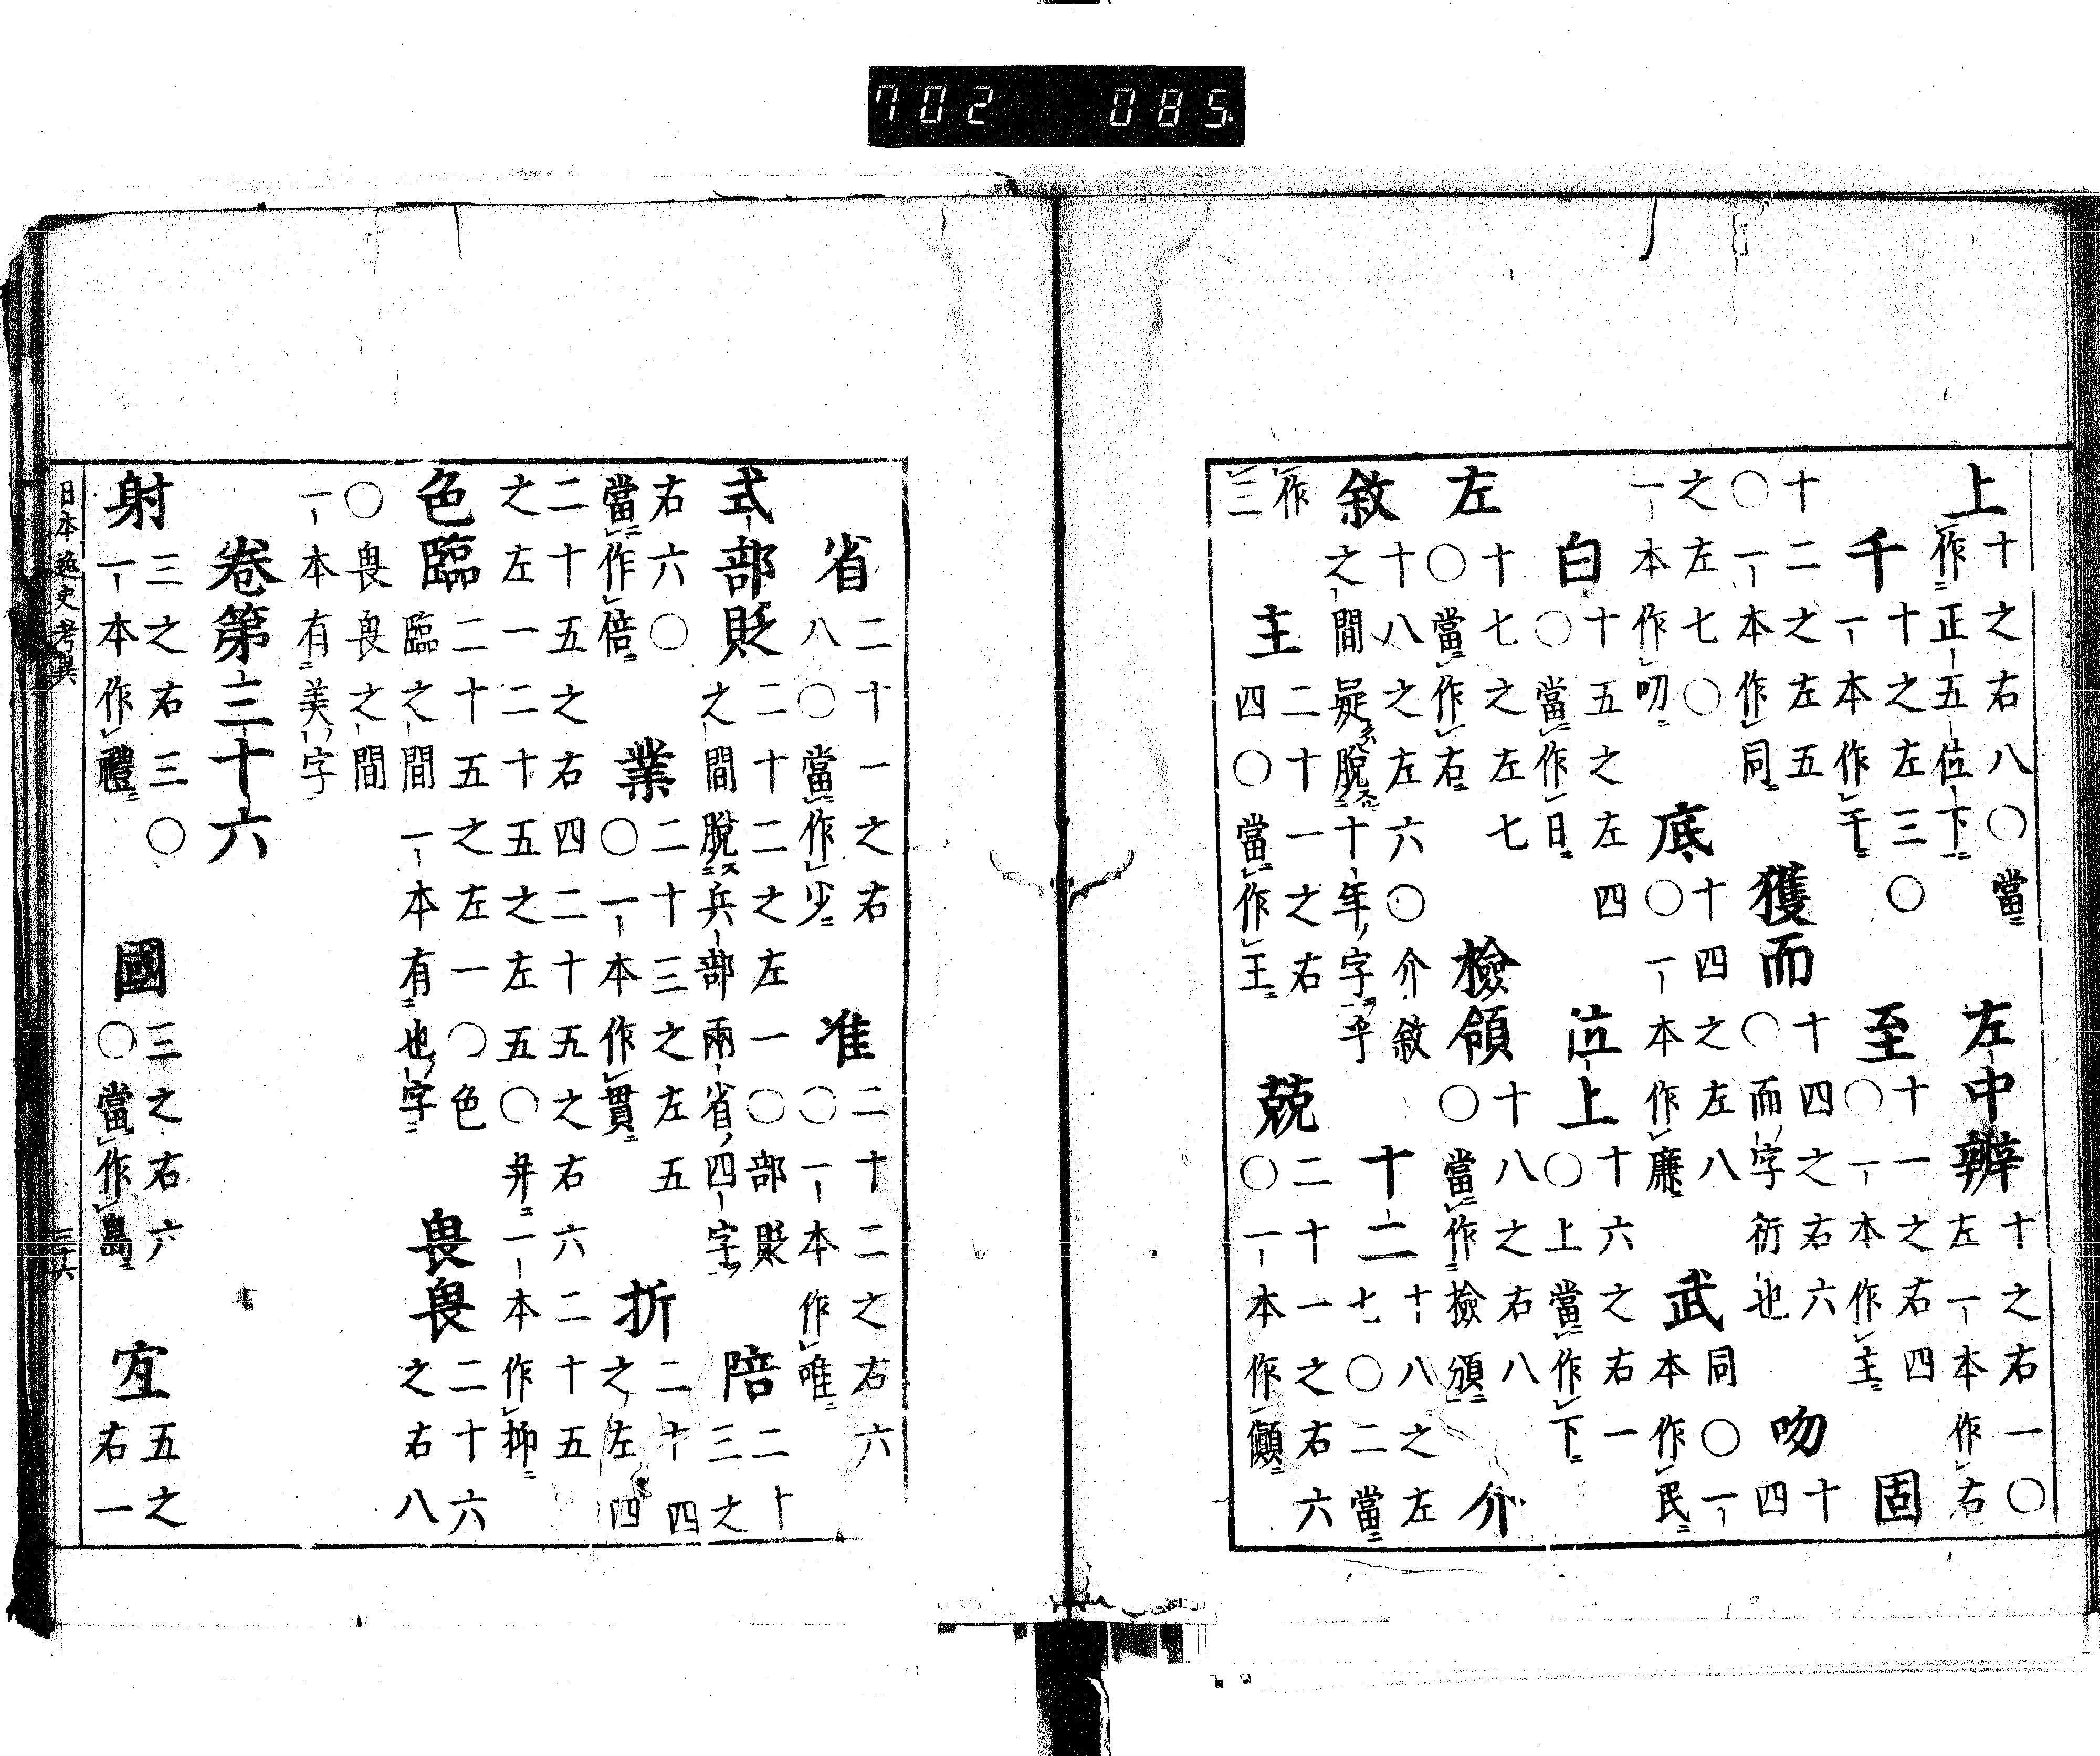 上十之右八○當作正五位下　左中辨十之右一○左一本作右
千十之左三○一本作干　至十一之右四○一本作主　固
十二之左五○一本作同　獲而十四之右六○而字衍也　吻十四
之左七○一本作叨　底十四之左八○一本作廉　武同○一本作民
白十五之左四○當作日　位上十六之右一○上當作下
左十七之左七○當作右　檢領十八之右八○當作檢頒　介
敘十八之左六○介敘之間疑脫十年字乎　十二十八之左七○二當
作三　主二十一之右四○當作王　兢二十一之右六○一本作
省二十一之右八○當作少　准二十二之右六○一本作唯
式部貶二十二之左一○部貶之間脫兵部兩省四字　陪二十三之
右六○當作倍　業二十三之左五○一本作貫　折二十四之左四
二十五之右四二十五之右六二十五之左一二十五之左五○并一本作抑
色臨二十五之左一○色臨之間一本有也字　畏畏二十六之右八
○畏畏之間一本有美字
卷第三十六
射三之右三○一本作禮　國三之右六○當作島　宜五之右一
日本逸史考異　三十六
702 085